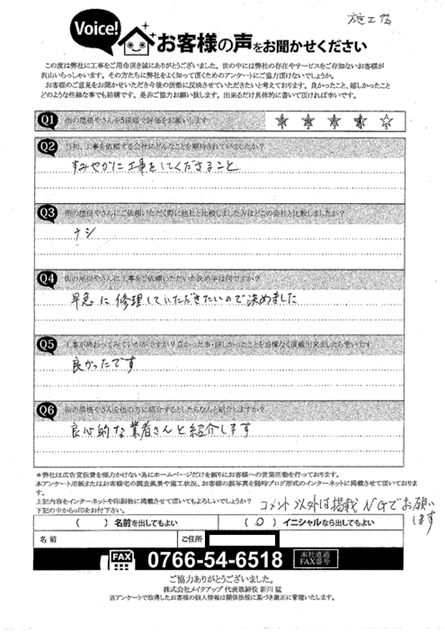 施工店
Voice!
お客様の声をお聞かせください
この度は弊社に工事をご用命頂き誠にありがとうございました。世の中には弊社の存在やサービスをご存知ないお客様が
沢山いらっしゃいます。その方たちに弊社をよく知って頂くためのアンケートにご協力頂けないでしょうか。
お客様のご意見をお聞かせいただき今後の活動に反映させていただきたいと考えております。良かったこと、嬉しかったこと
どのような些細な事でも結構です。是非ご協力お願い致します。出来るだけ具体的に書いて頂ければ幸いです。
Q1 街の屋根やさんを5段階で評価をお願いします ★ ★ ★ ★ ☆
Q2 当初、工事を依頼する会社にどんなことを期待されていましたか?
すみやかに工事をしてくださること
Q3 街の屋根やさんにご依頼いただく際に他社と比較しました方はどこの会社と比較しましたか?
ナシ
Q4 街の屋根やさんに工事をご依頼いただいた決め手は何ですか?
早急に修理していただきたいので決めました
Q5 工事が終わってみていかがですか?良かった事・嬉しかったことを
良かったです
Q6 街の屋根やさんを他の方に紹介するとしたらなんと紹介しますか?
良心的な業者さんと紹介します
*弊社は広告宣伝費を極力かけない為にホームページだけを頼りにお客様への営業活動を行っております。
本アンケート用紙またはお客様宅の調査風景や施工状況、お客様の顔写真を随時ブログ形式のインターネットに掲載させて頂いております。
上記内容をインターネットや印刷物に掲載させて頂いてもよろしいでしょうか?
下記の中から○印をお付け下さい。
コメント以外は掲載NGでお願いします
( ) 名前を出してもよい ( ○ ) イニシャルなら出してもよい
名前 ご住所
FAX 0766-54-6518 本社直通 FAX番号
ご協力ありがとうございました。
株式会社メイクアップ 代表取締役 新川 猛
当アンケートで取得したお客様の個人情報は関係法規に基づき厳正に管理いたします。